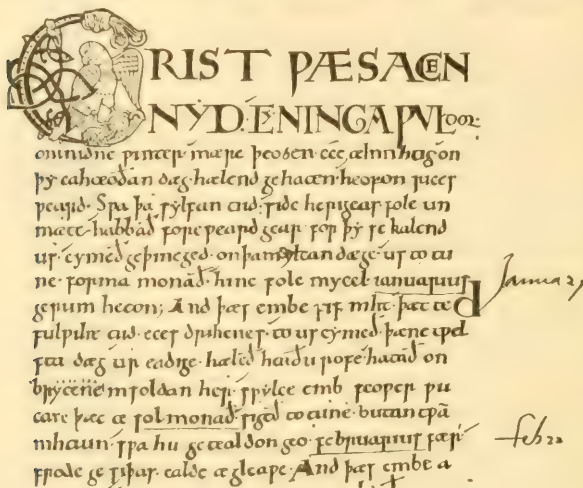 CRIST ǷÆS ACEN
NẎD. CẎNINGA ǷVLDOR·
on midne ƿinter· mære þeoden· ece, ælmihtig· on
þẏ eahteoðan dæg· hælend gehaten· heofon rices
ƿeard· Sƿa þa sylfan tiid· side herigeas folc un
mæte· habbað fore ƿeard gear for þẏ se kalend
us· cymeð geþincged· on þam ylcan dæge· us to tu
ne· forma monað· hine folc mycel· ianuarius
gerum heton; And þæs embe fif niht· þæt te January
fulƿiht tiid· eces drihtnes· to us cymeð· þæne tƿel
fta dæg tir eadige· hæleð heaðu rofe hatað on
brytene in foldan her· sƿylce emb feoƿer ƿu
can þæt te sol monað sigeð to tune· butan tƿam
nihtum· sƿa hit getealdon geo· februarius fær· feb
frode ge siþas· ealde ægleaƿe· And þæs embe a